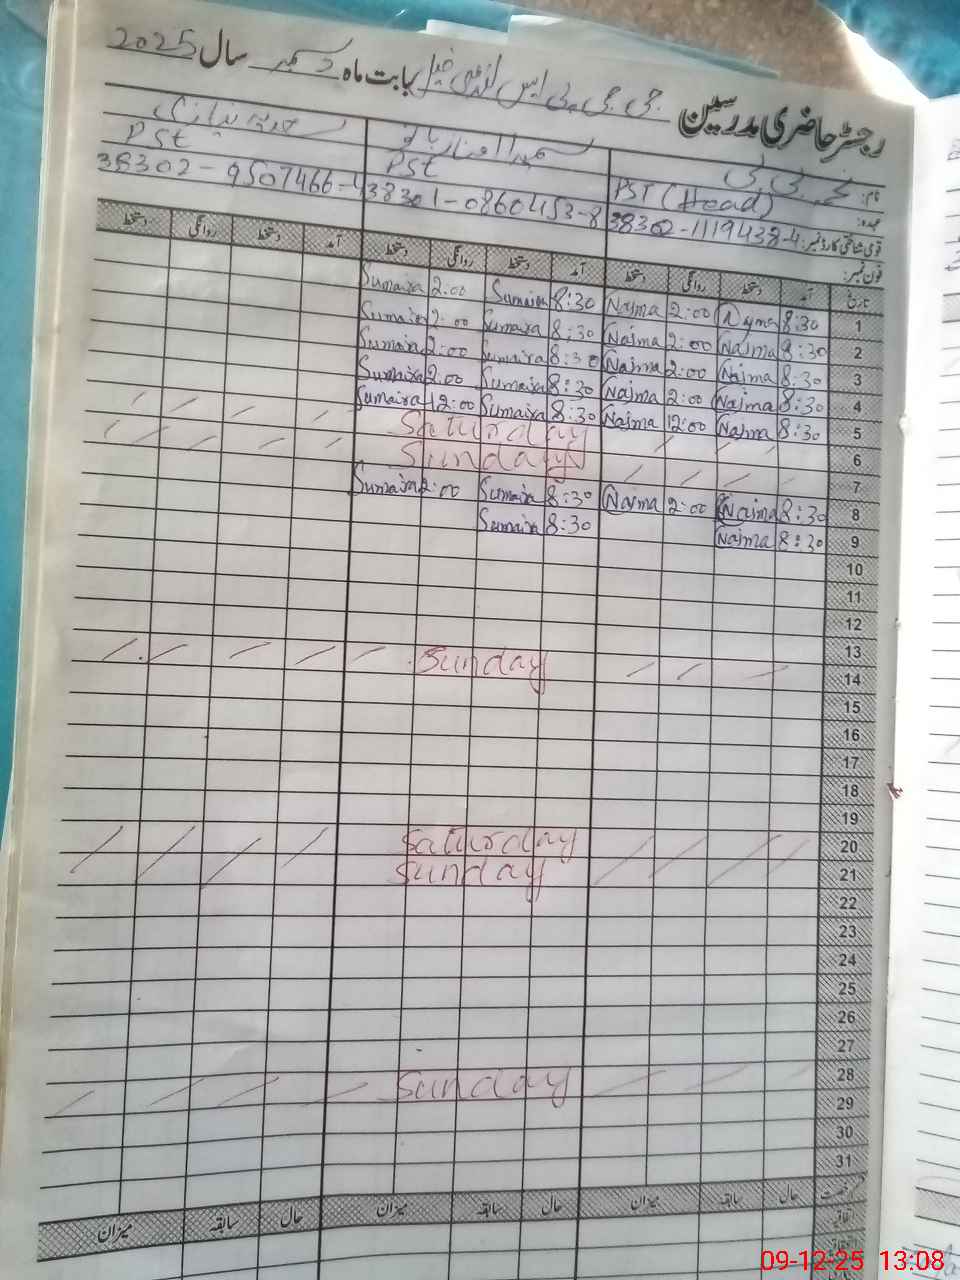 رجسٹر حاضری مدرسین جی جی پی ایس لنڈی خیل بابت ماہ دسمبر سال 2025
نام:
PST (Head) Pst Pst
عہدہ:
قومی شناختی کارڈ نمبر: 38302-1119438-4 38301-0860453-8 38302-9507466-4
فون نمبر:
تاریخ آمد دستخط روانگی دستخط آمد دستخط روانگی دستخط آمد دستخط روانگی دستخط
1 8:30 Najma 2:00 Najma 8:30 Sumaira 2:00 Sumaira
2 8:30 Najma 2:00 Najma 8:30 Sumaira 2:00 Sumaira
3 8:30 Najma 2:00 Najma 8:30 Sumaira 2:00 Sumaira
4 8:30 Najma 2:00 Najma 8:30 Sumaira 2:00 Sumaira
5 8:30 Najma 12:00 Najma 8:30 Sumaira 12:00 Sumaira
6 Saturday
7 Sunday
8 8:30 Najma 2:00 Najma 8:30 Sumaira 2:00 Sumaira
9 8:30 Najma 8:30 Sumaira
10
11
12
13
14 Sunday
15
16
17
18
19
20 Saturday
21 Sunday
22
23
24
25
26
27
28 Sunday
29
30
31
حال سابقہ میزان حال سابقہ میزان حال سابقہ میزان
09-12-25 13:08